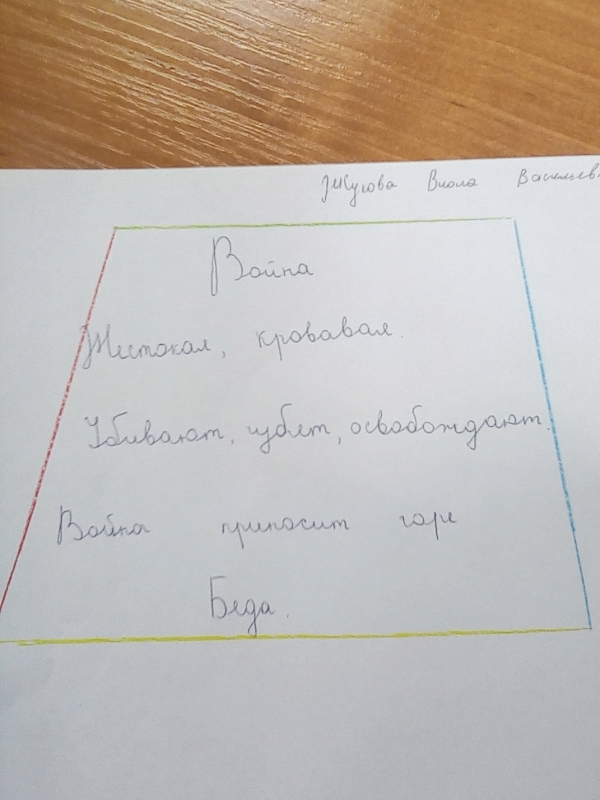 Жукова Виола Васильев
Война
Жестокая, кровавая.
Убивают, губят, освобождают.
Война приносит горе
Беда.